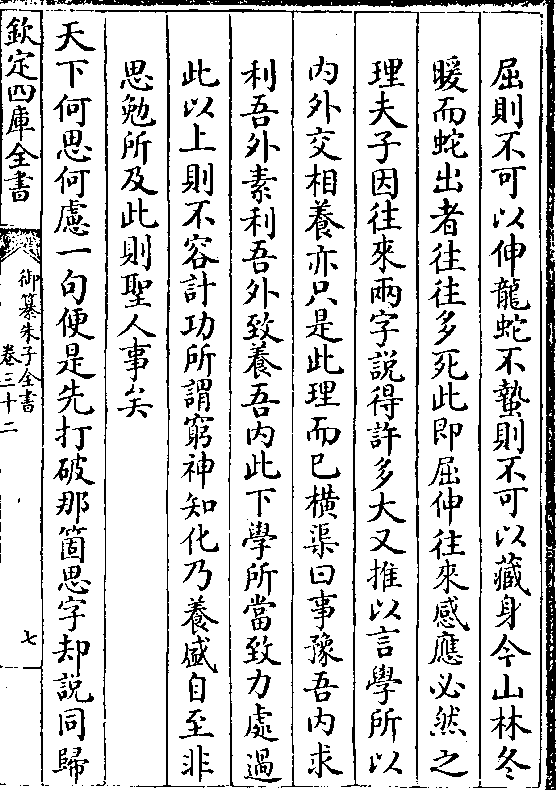 屈則不可以伸龍蛇不蟄則不可以藏身今山林冬
暖而蛇出者往往多死此即屈伸往來感應必然之
理夫子因往來兩字說得許多大又推以言學所以
内外交相養亦只是此理而已橫渠曰事豫吾内求
利吾外素利吾外致養吾内此下學所當致力處過
此以上則不容計功所謂窮神知化乃養盛自至非
思勉所及此則聖人事矣
天下何思何慮一句便是先打破那箇思字却說同歸
欽定四庫全書
御纂朱子全書
卷三十二
七